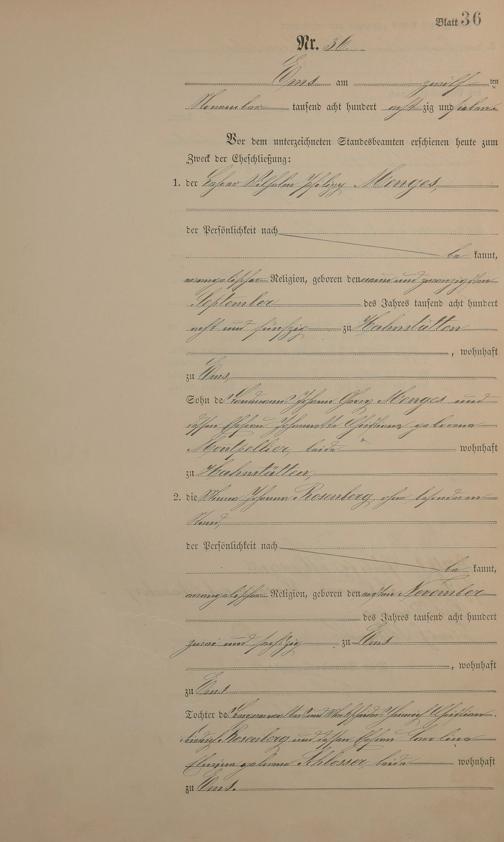 Blatt 36
Nr. 36
Ems am zwölf ten
November tausend acht hundert acht zig und sieben
Vor dem unterzeichneten Standesbeamten erschienen heute zum
Zweck der Eheschließung:
1. der Wilhelm Philipp Menges,
der Persönlichkeit nach
be kannt,
evangelischer Religion, geboren den neun und zwanzigsten
September des Jahres tausend acht hundert
acht und fünfzig zu Hahnstätten
, wohnhaft
zu Ems,
Sohn des Landmanns Johann Georg Menges und
dessen Ehefrau Johannette Christiane geborene
Montpellier, beide wohnhaft
zu Hahnstätten,
2. die Johanna Rosenberg, ohne besonderen
Stand,
der Persönlichkeit nach
be kannt,
evangelischer Religion, geboren den November
des Jahres tausend acht hundert
zwei und sechzig zu Ems
, wohnhaft
zu Ems
Tochter des Christian
Rosenberg und dessen Ehefrau
geborene Schlosser beide wohnhaft
zu Ems.